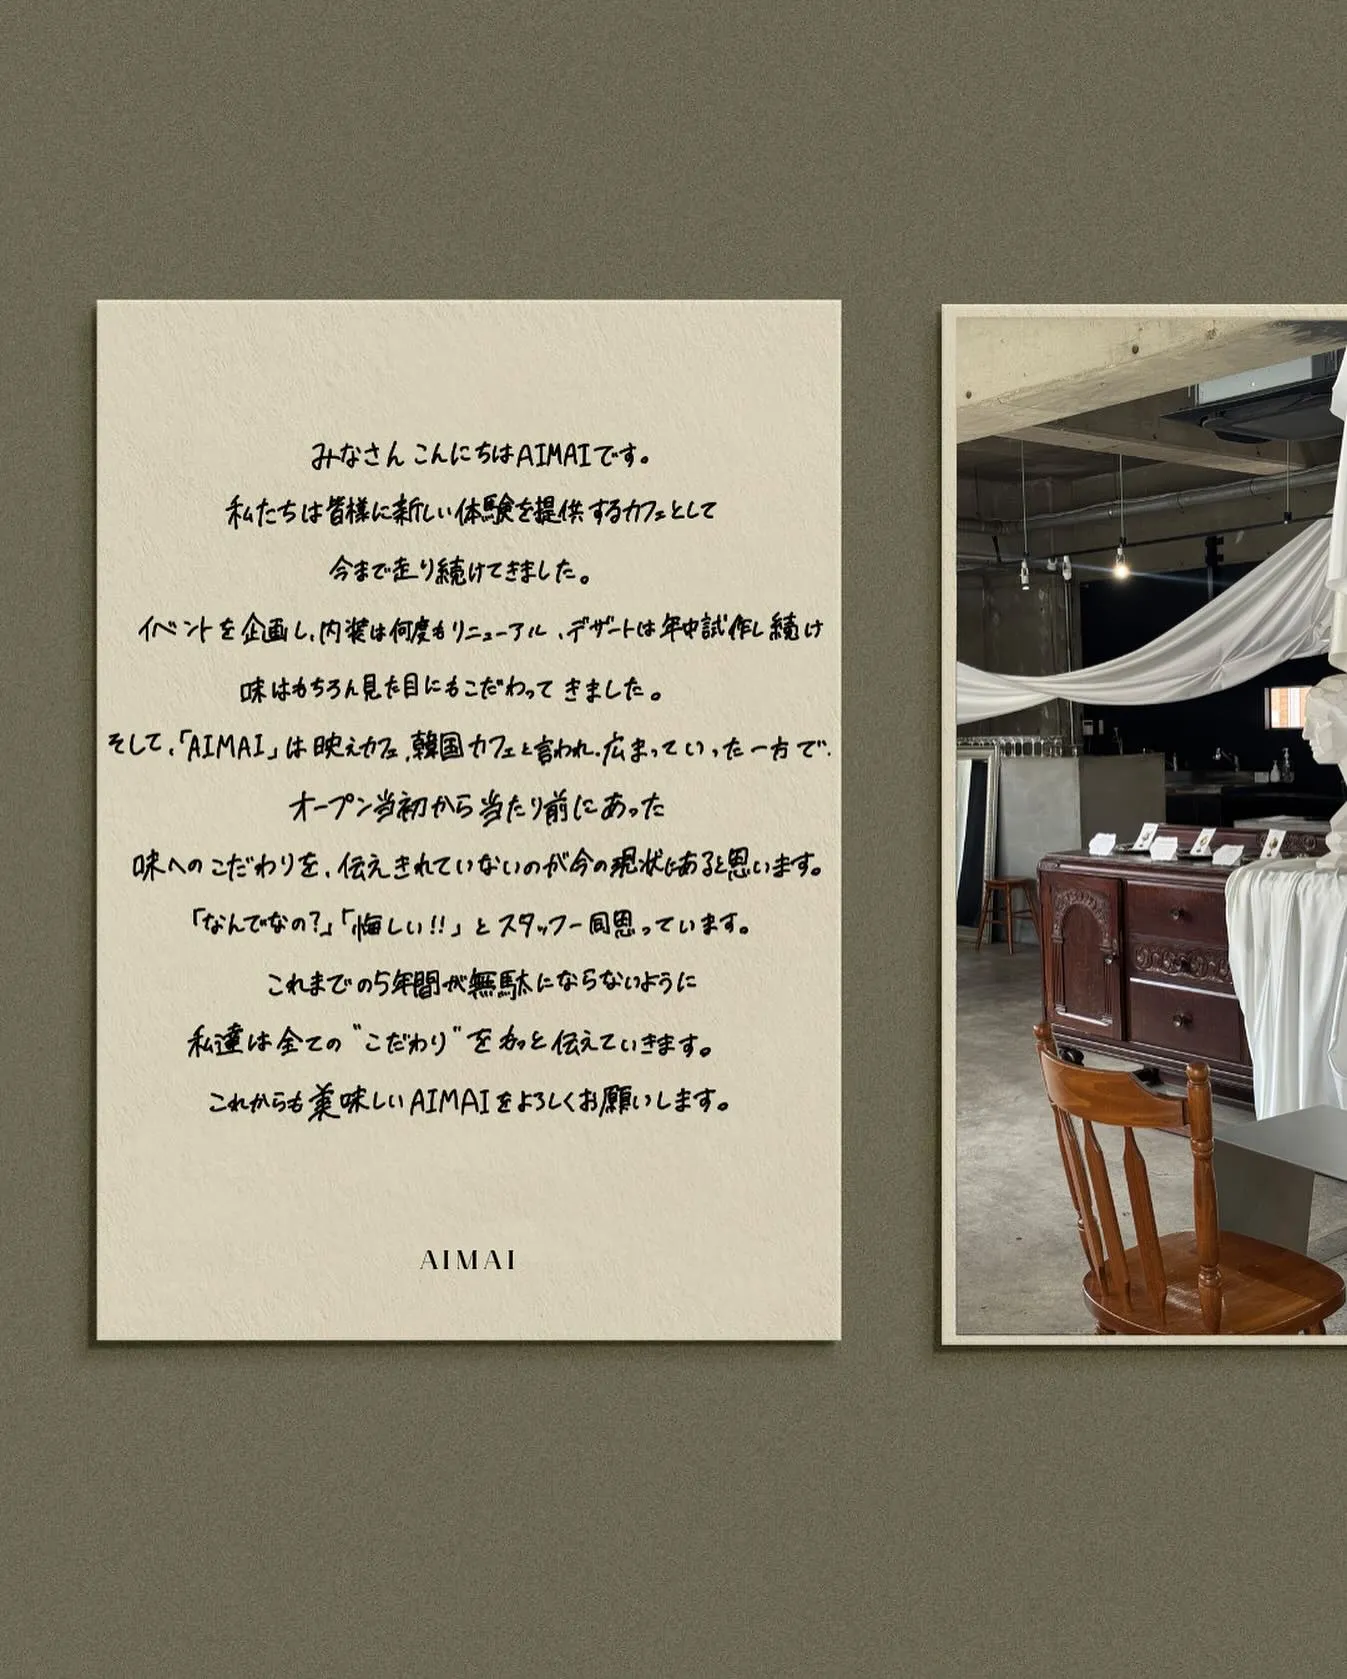 みなさん こんにちはAIMAIです。
私たちは皆様に新しい体験を提供するカフェとして
今まで走り続けてきました。
イベントを企画し、内装は何度もリニューアル、デザートは年中試作し続け
味はもちろん見た目にもこだわってきました。
そして、「AIMAI」は映えカフェ、韓国カフェと言われ、広まっていった一方で、
オープン当初から当たり前にあった
味へのこだわりを、伝えきれていないのが今の現状にあると思います。
「なんでなの?」「悔しい!!」とスタッフ一同思っています。
これまでの5年間が無駄にならないように
私達は全ての"こだわり"をもっと伝えていきます。
これからも美味しいAIMAIをよろしくお願いします。
AIMAI